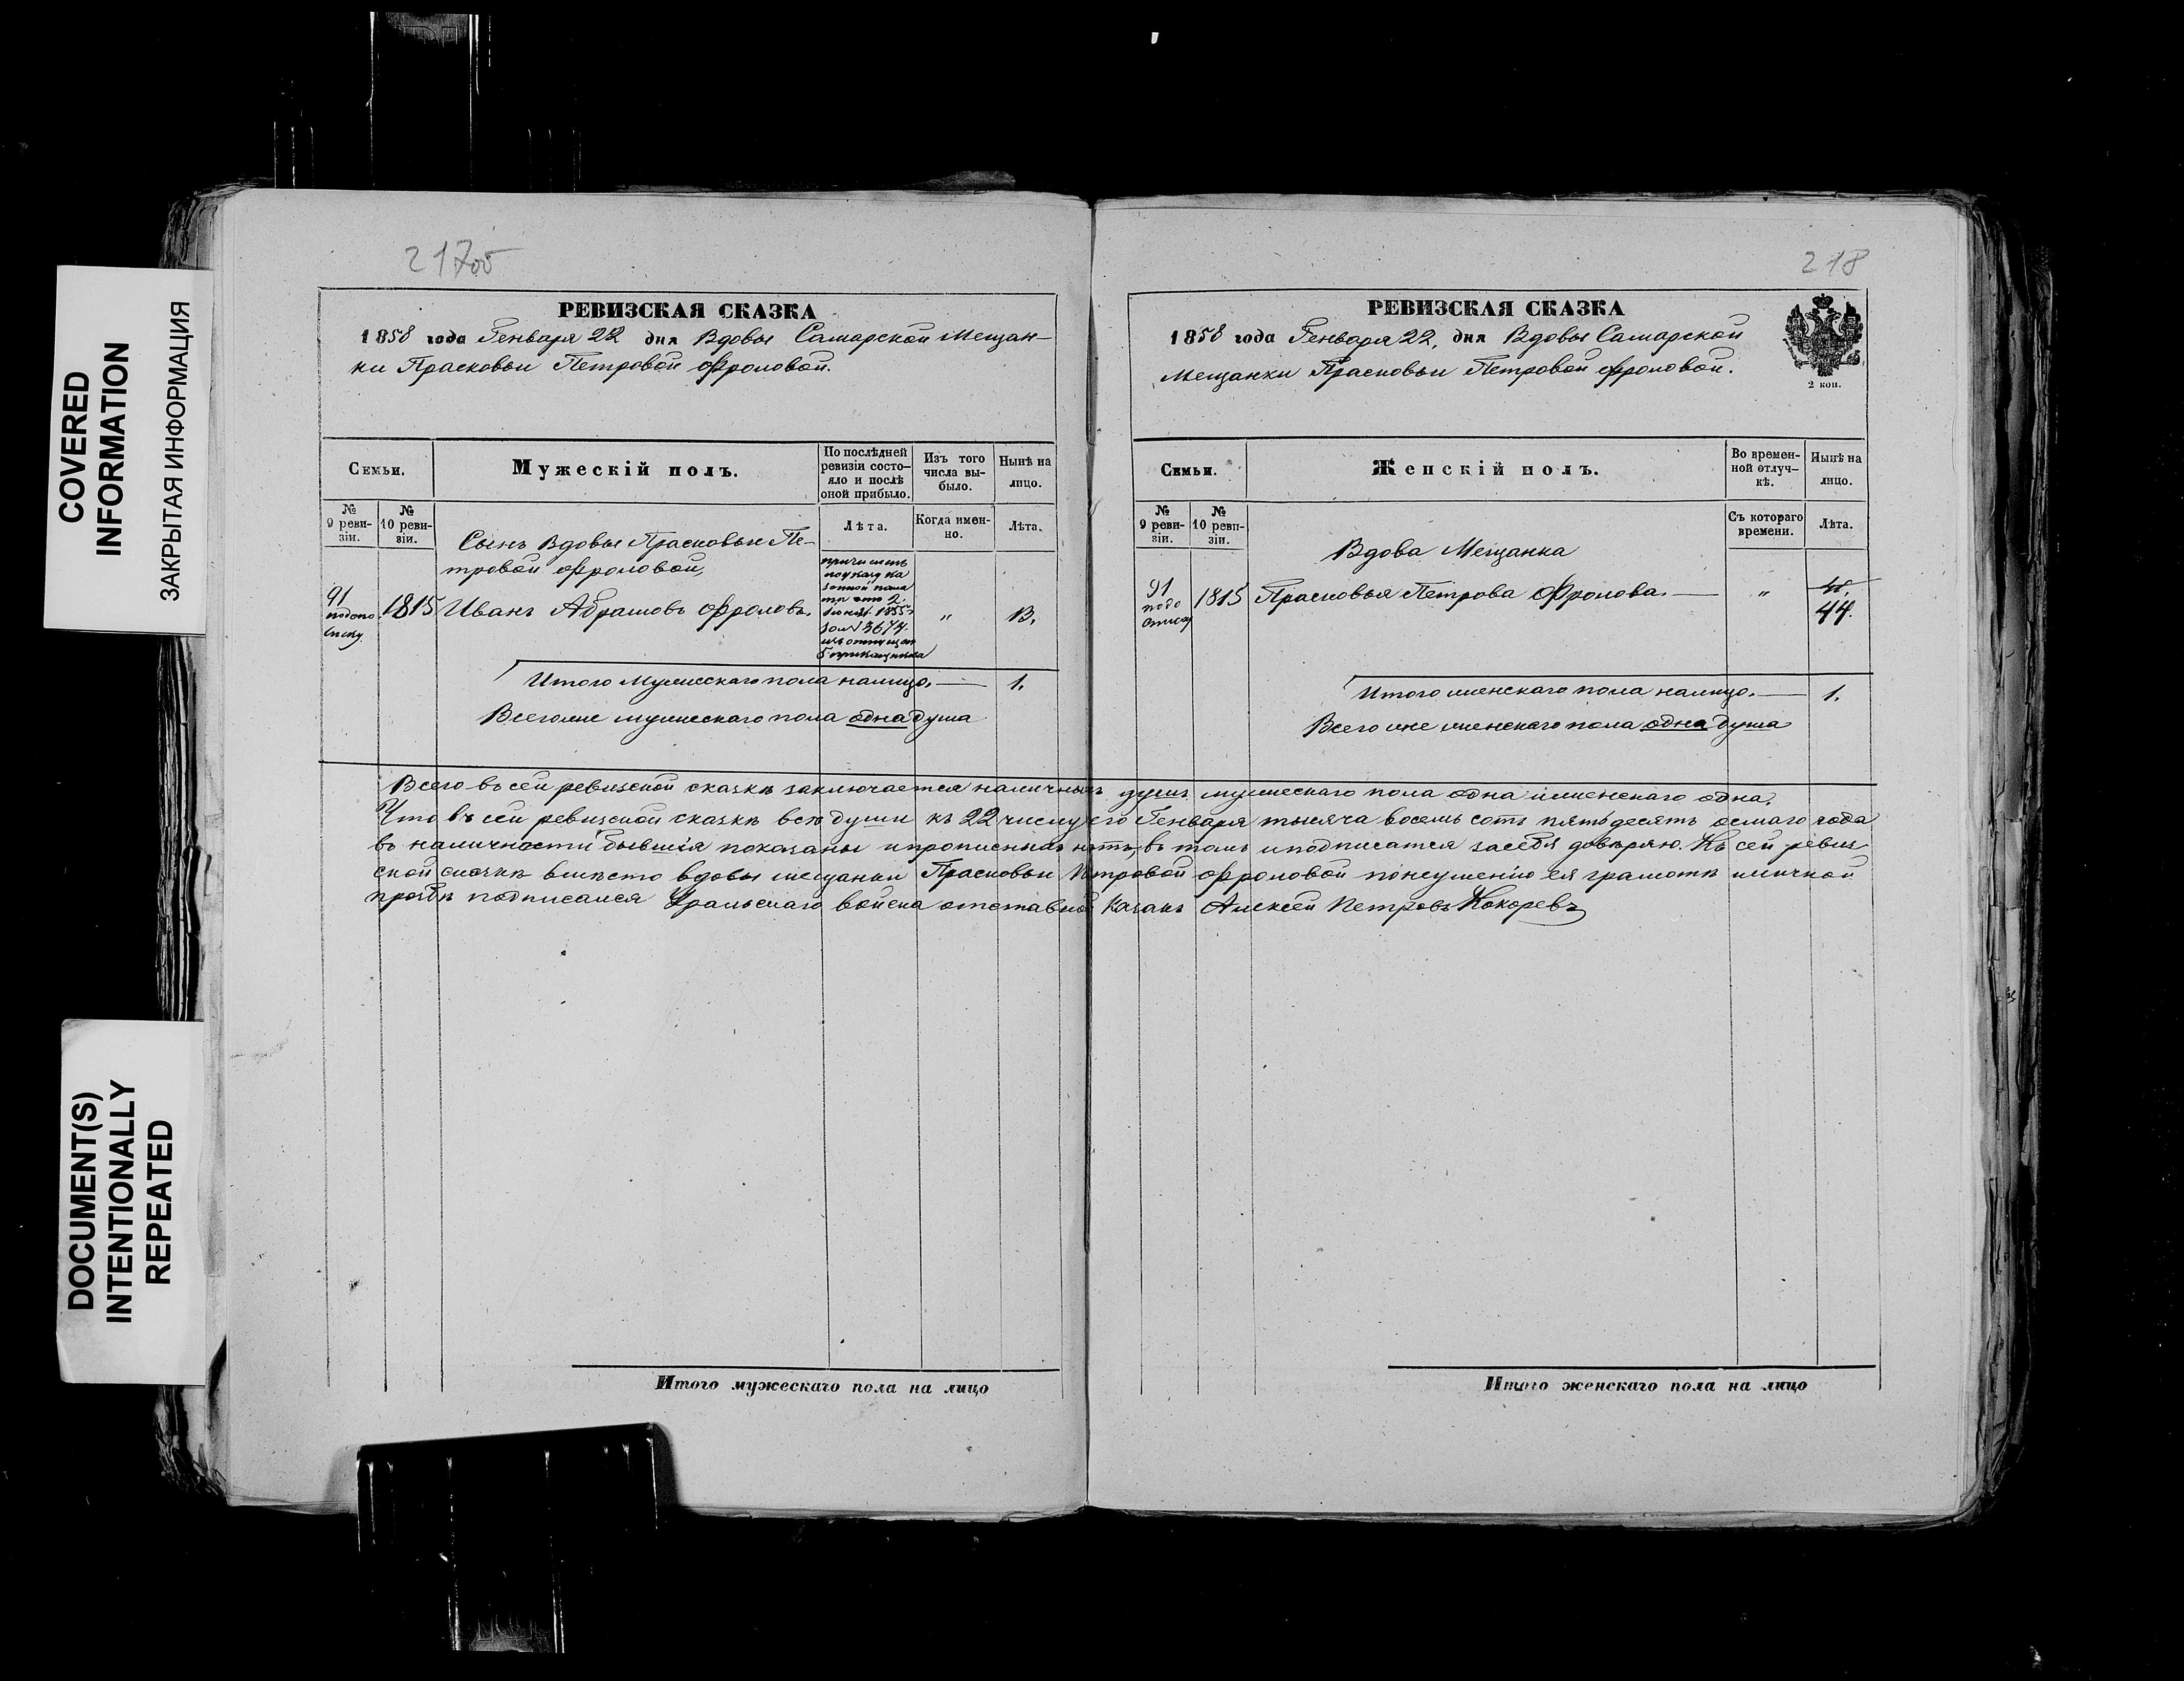 COVERED
INFORMATION
ЗАКРЫТАЯ ИНФОРМАЦИЯ
DOCUMENT(S)
INTENTIONALLY
REPEATED
217об
РЕВИЗСКАЯ СКАЗКА
1858 года Генваря 22 дня Вдовы Самарской Мещан-
ки Прасковьи Петровой Фроловой.
Семьи.
Мужескій полъ.
По послѣдней
ревизіи состо-
яло и послѣ
оной прибыло.
Изъ того
числа вы-
было.
Нынѣ на
лицо.
№
9 реви-
зіи.
№
10 реви-
зіи.
Лѣта.
Когда имен-
но.
Лѣта.
Сынъ Вдовы Прасковьи Пе-
тровой Фроловой,
91
1815 Иванъ Абрамовъ Фроловъ.
"
13.
Итого Мужескаго пола налицо. — 1.
Всего же мужескаго пола одна душа
218
РЕВИЗСКАЯ СКАЗКА
1858 года Генваря 22, дня Вдовы Самарской
Мещанки Прасковьи Петровой Фроловой.
2 коп.
Семьи.
Женскій полъ.
Во времен-
ной отлуч-
кѣ.
Нынѣ на
лицо.
№
9 реви-
зіи.
№
10 реви-
зіи.
Съ котораго
времени.
Лѣта.
Вдова Мещанка
91
1815 Прасковья Петрова Фролова. — "
44.
Итого женскаго пола налицо. — 1.
Всего же женскаго пола одна душа
Всего въ сей ревизской сказкѣ заключается наличныхъ душъ мужескаго пола одна и женскаго одна.
Что въ сей ревизской сказкѣ всѣ души къ 22 числу его Генваря тысяча восемь сотъ пятьдесятъ осмаго года
въ наличности бывшія показаны и прописныхъ нѣтъ, въ томъ и подписатся за себя довѣряю. Къ сей ревиз
ской сказкѣ вмѣсто вдовы мещанки Прасковьи Петровой Фроловой по неумѣнію ея грамотѣ и личной
прозбѣ подписался Уральскаго войска отставной Казакъ Алексей Петровъ Кокоревъ
Итого мужескаго пола на лицо
Итого женскаго пола на лицо